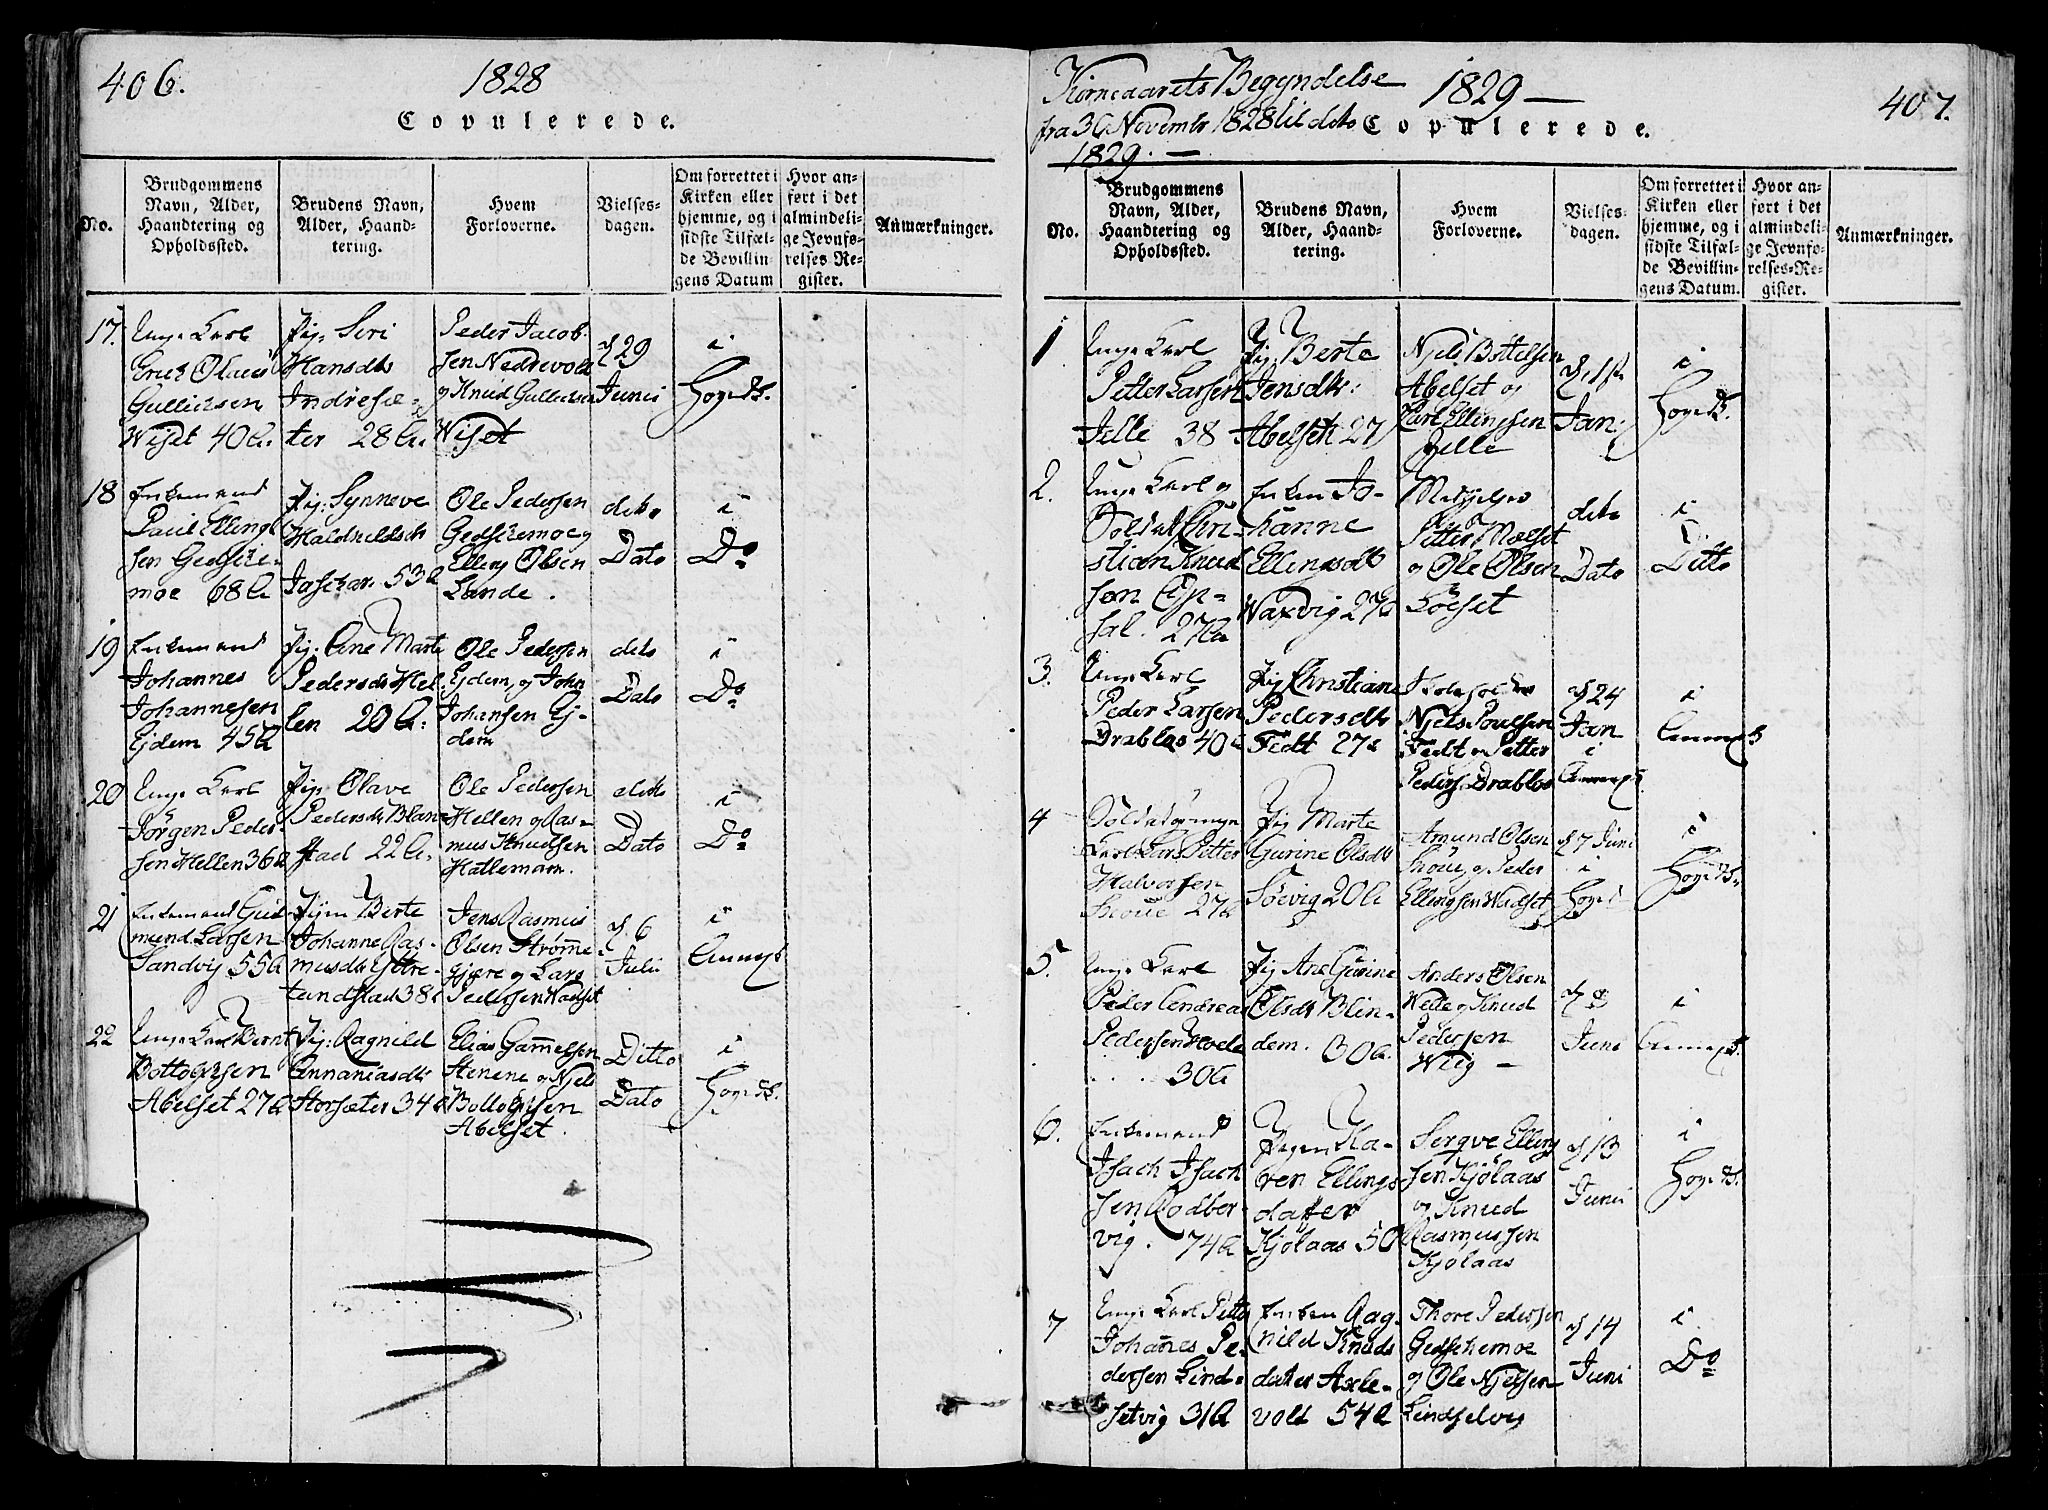 406.
1828
Copulerede.
No.
Brudgommens
Navn, Alder,
Haandtering og
Opholdssted.
Brudens Navn,
Alder, Haand-
tering.
Hvem
Forloverne.
Vielses-
dagen.
Om forrettet i
Kirken eller
hjemme, og i
sidste Tilfæl-
de Bevillin-
gens Datum
Hvor an-
ført i det
almindeli-
ge Jevnfø-
relses Re-
gister.
Anmærkninger.
17.
Unge Karl
Erich Olaus
Gullichsen
Wiset 40 A.
Pig: Siri
Hansdtr
Indresæ-
ter 28 A.
Peder Jacob-
sen Nedrevold
og Knud Gullichsen
Wiset
d 29
Junii
i
18
Enkemand
Paul Elling-
sen Gedsche-
moe 68 A
Pig: Synneve
53 A
Ole Pedersen
Gedschemoe og
Elling Olsen
Lande.
dito
Dato
i
Do
19
Enkemand
Johannes
Johannesen
Ejdem 45 A
Pig: Ane Marte
Pedersdtr Hel-
len 20 A.
Ole Pedersen
Ejdem, og John
Johansen Ej-
dem
dito
Dato
i
Do
20
Unge Karl
Jörgen Peder-
sen Hellen 36 A
Pig: Olave
Pedersdtr Blan-
stad 22 A.
Ole Pedersen
Hellen og Ras-
mus Knudsen
Hatlemarn.
dito
Dato
i
Do
21
Enkemand Gud-
mund Larsen
Sandvig 55 A
Pigen Berte
Johanne Ras-
musdtr Yttre-
tundstad 38 A
Jens Rasmus
Olsen Strömme-
gjære og Lars
Pedersen Wadset
d. 6
Julii
i
22
Unge Karl Bernt
Bottolvsen
Abelset 27 A
Pig: Ragnild
Annaniasdtr
Storsæter 34 A
Elias Gammelsen
Stenene og Njels
Bottolvsen
Abelset.
Ditto
Dato
i
Kirkeaarets Begyndelse
fra 30 Novembr 1828 til dito
1829. —
1829 —
Copulerede.
407.
No.
Brudgommens
Navn, Alder,
Haandtering og
Opholdssted.
Brudens Navn,
Alder, Haand-
tering.
Hvem
Forloverne.
Vielses-
dagen.
Om forrettet i
Kirken eller
hjemme, og i
sidste Tilfæl-
de Bevillin-
gens Datum.
Hvor an-
ført i det
almindeli-
ge Jevnfø-
relses-Re-
gister.
Anmærkninger.
1
Unge Karl
Petter Larsen
Jelle 38
Pig: Berte
Jensdtr:
Abelset 27
Njels Bottelsen
Abelset og
Carl Ellingsen
Jelle
d. 1ste
Jan:
i
2.
Unge Karl og
Soldat Chri-
stian Knud-
sen Op-
sal. 27 A
Enken Jo-
hanne
Ellingsdtr
Waxvig 27 A
Petter Mælset
og Ole Olsen
Löeset
dito
Dato
i
Ditto
3.
Unge Karl
Peder Larsen
Drablos 40 A
Pig Christiane
Pedersdtr
Fedt 27 A
Njels Poulsen
Fedt og Petter
Peders. Drablos
d 24
Jan
i
i
4
Soldat og unge
Karl Lars Petter
Halvorsen
27 A
Pig Marte
Gurine Olsdtr
Söevig 20 A
Amund Olsen
og Peder
Ellingsen Wadset
d 7 Juni
i
i
5.
Unge Karl
Peder Andreas
Pedersen
30 A
Pig Ane Gurine
Olsdtr Blin-
dem. 30 A.
Anders Olsen
Welle og Knud
Pedersen
Wiig —
d 8
Juni
i
6.
Enkemand
Isach Isach-
sen Rodber-
vig. 74 A
Pigen Ka-
ren Ellings-
datter
Kjölaas 50 A
Serqve Elling-
sen Kjölaas
og Knud
Rasmussen
Kjölaas
d 13
Junii
i
7
Unge Karl Petter
Johannes Pe-
dersen Lind-
setvig 31 A
Enken Rag-
nild Knuds-
dater Axle-
vold 54 A
Thore Pedersen
Gedschemoe
og Ole Njelsen
Lindsetvig
d 14
Juni
i
Do